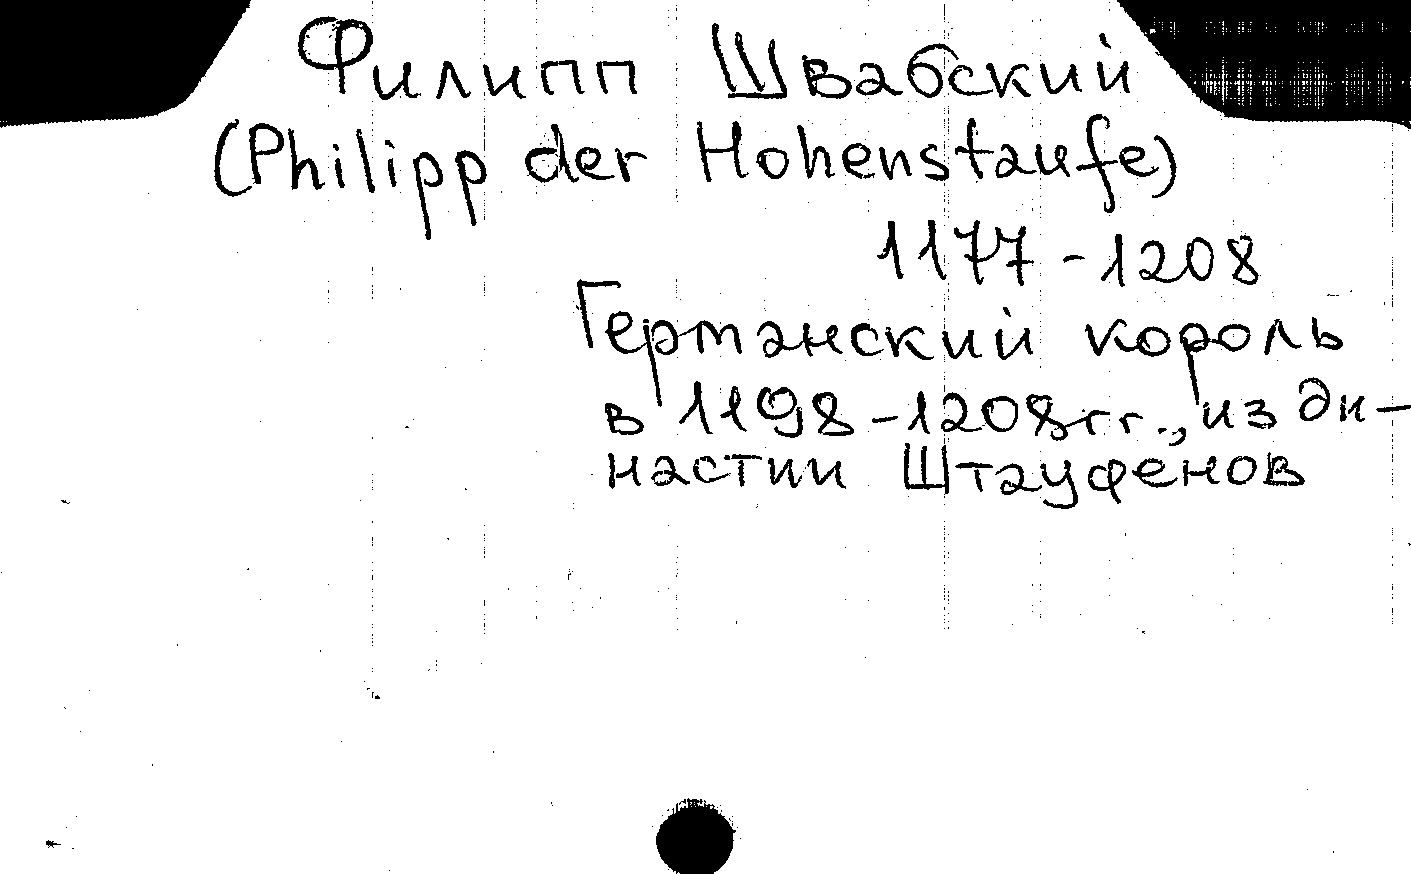 Филипп Швабский
(Philipp der Hohenstaufe)
1177-1208
Германский король
в 1198-1208гг., из ди-
настии Штауфенов